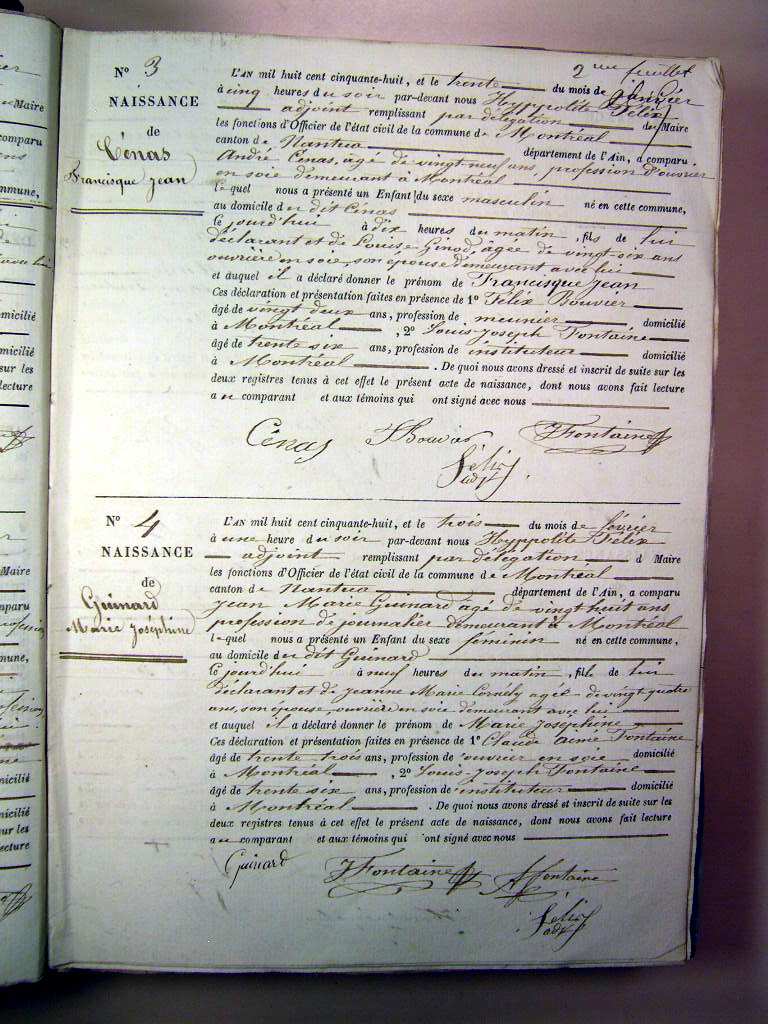 2me feuillet
N° 3
NAISSANCE
de
Cénas
Francisque Jean
L'AN mil huit cent cinquante-huit, et le trente du mois de janvier
à cinq heures du soir par-devant nous Hyppolite Félix
adjoint remplissant par délégation du Maire
les fonctions d'Officier de l'état civil de la commune de Montréal
canton de Nantua département de l'Ain, a comparu
André Cénas, agé de vingt neuf ans, profession d'ouvrier
en soie demeurant à Montréal
lequel nous a présenté un Enfant du sexe masculin né en cette commune,
au domicile du dit Cénas
ce jourd'hui à dix heures du matin, fils de lui
déclarant et de Louise Ginod, agée de vingt-six ans
ouvrière en soie, son épouse demeurant avec lui
et auquel il a déclaré donner le prénom de Francisque Jean
Ces déclaration et présentation faites en présence de 1° Félix Bouvier
âgé de vingt deux ans, profession de meunier domicilié
à Montréal, 2° Louis Joseph Fontaine
âgé de trente six ans, profession de instituteur domicilié
à Montréal. De quoi nous avons dressé et inscrit de suite sur les
deux registres tenus à cet effet le présent acte de naissance, dont nous avons fait lecture
au comparant et aux témoins qui ont signé avec nous
Cénas FBouvier JFontaine
Félix
adj
N° 4
NAISSANCE
de
Guinard
Marie Joséphine
L'AN mil huit cent cinquante-huit, et le trois du mois de février
à une heure du soir par-devant nous Hyppolite Félix
adjoint remplissant par délégation d Maire
les fonctions d'Officier de l'état civil de la commune de Montréal
canton de Nantua département de l'Ain, a comparu
Jean Marie Guinard agé de vingt huit ans
profession de journalier demeurant à Montréal
lequel nous a présenté un Enfant du sexe féminin né en cette commune,
au domicile du dit Guinard
ce jourd'hui à neuf heures du matin, fille de lui
déclarant et de Jeanne Marie Cornély agée de vingt quatre
ans, son épouse, ouvrière en soie demeurant avec lui
et auquel il a déclaré donner le prénom de Marie Joséphine
Ces déclaration et présentation faites en présence de 1° Claude Aimé Fontaine
âgé de trente trois ans, profession de ouvrier en soie domicilié
à Montréal, 2° Louis Joseph Fontaine
âgé de trente six ans, profession de instituteur domicilié
à Montréal. De quoi nous avons dressé et inscrit de suite sur les
deux registres tenus à cet effet le présent acte de naissance, dont nous avons fait lecture
au comparant et aux témoins qui ont signé avec nous
Guinard JFontaine AFontaine
Félix
adj